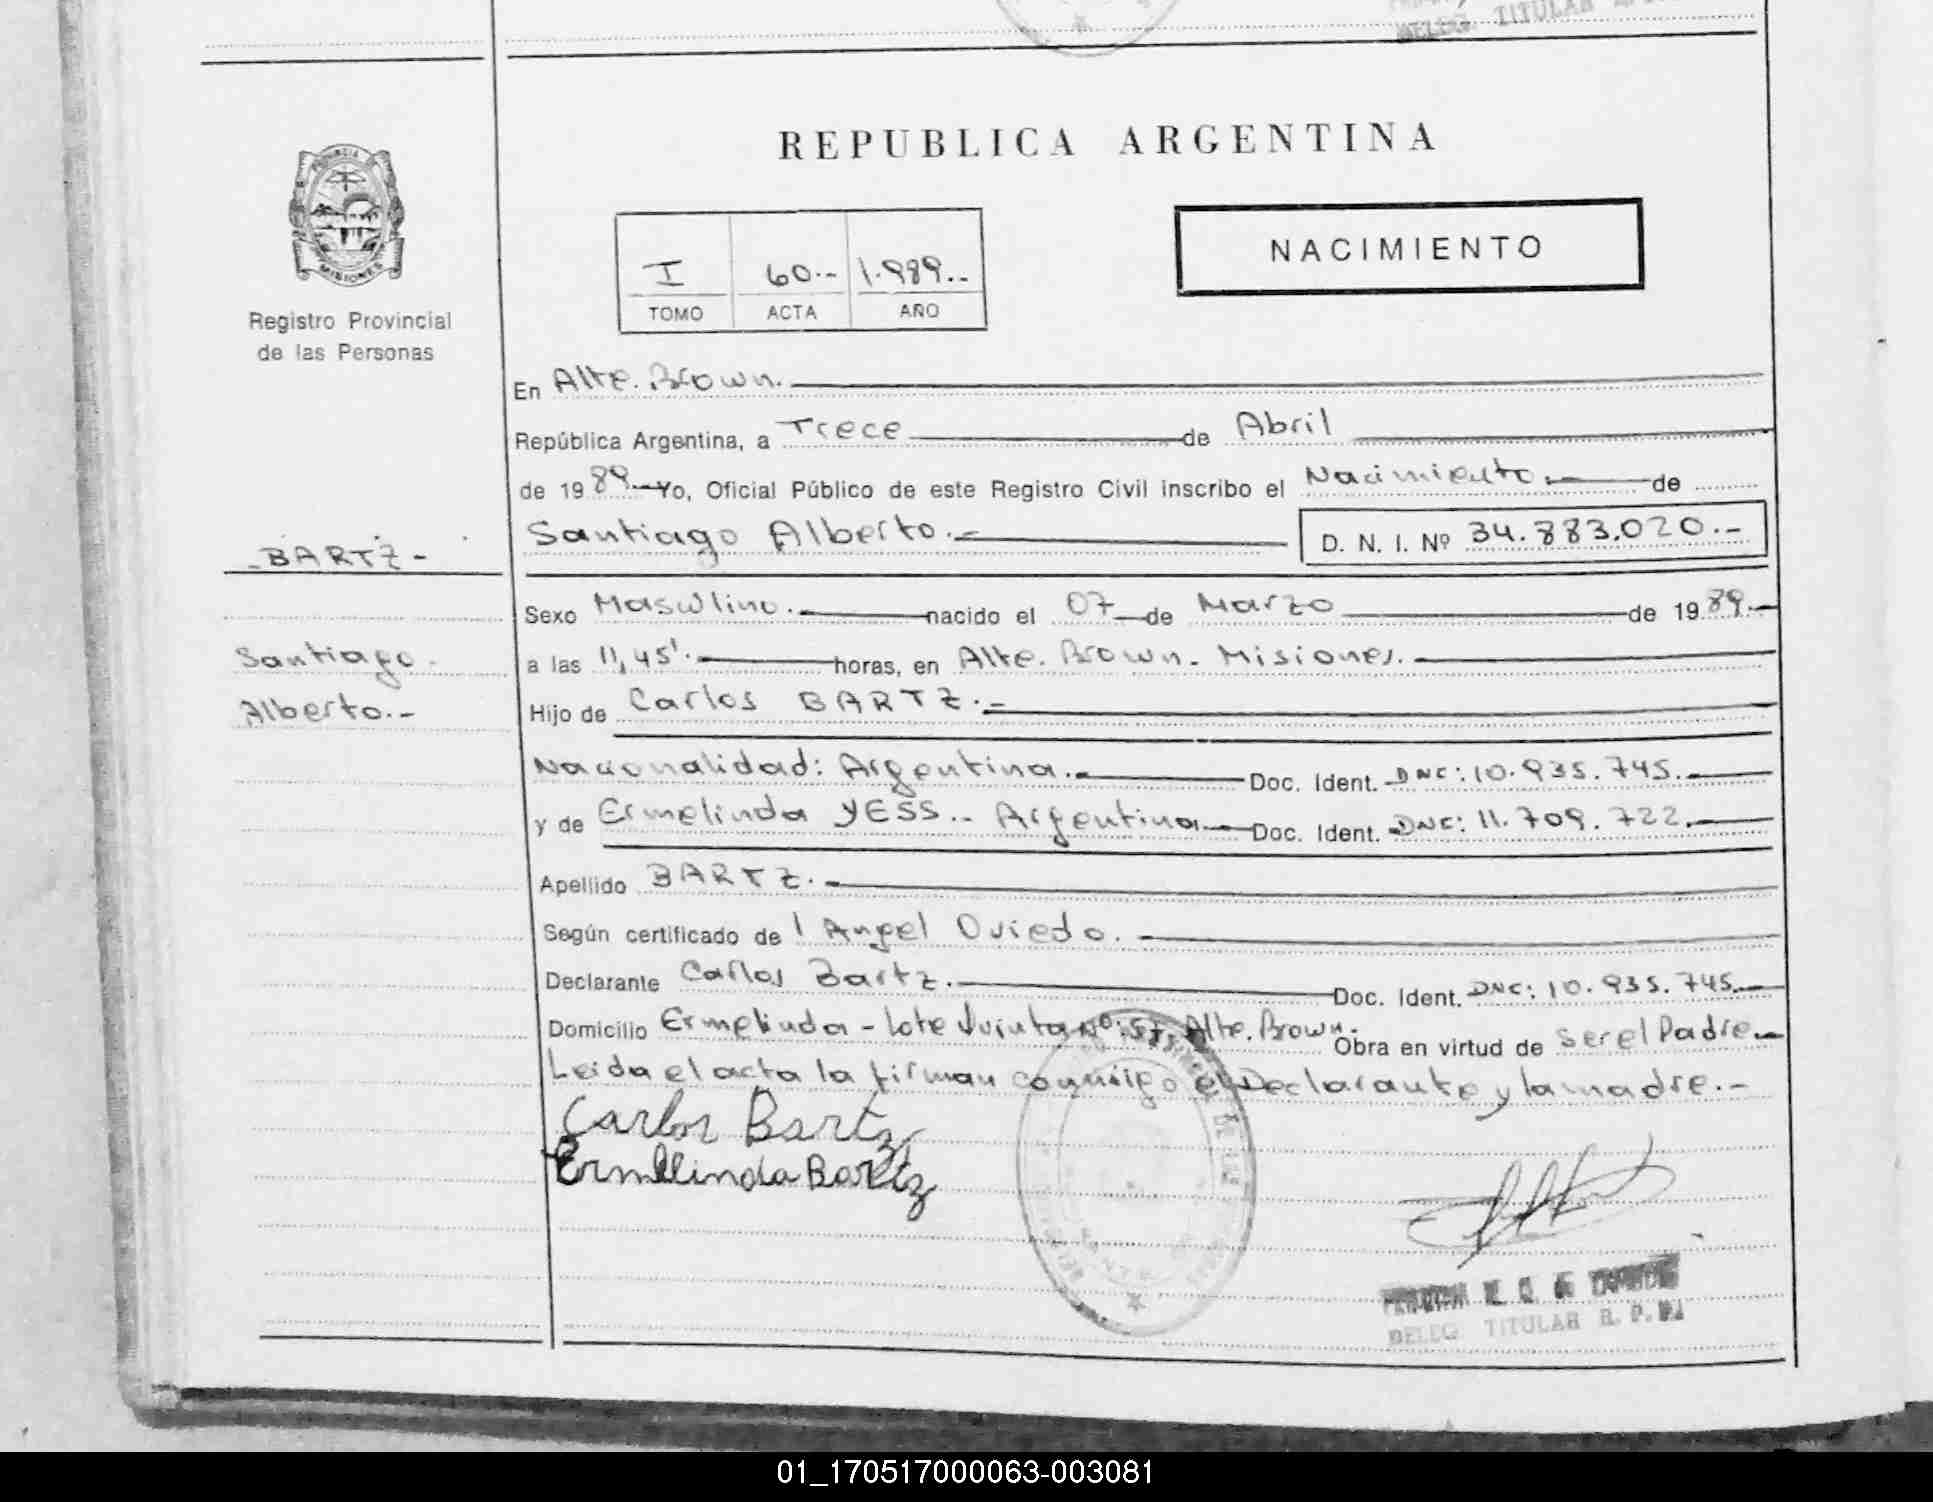 DELEG. TITULAR
REPUBLICA ARGENTINA
PROVINCIA
MISIONES
Registro Provincial
de las Personas
I 60.-- 1.989.--
TOMO ACTA AÑO
NACIMIENTO
En Alte. Brown.
República Argentina, a Trece de Abril
de 1989.- Yo, Oficial Público de este Registro Civil inscribo el Nacimiento.- de
Santiago Alberto.- D. N. I. Nº 34.883.020.--
-BARTZ-
Sexo Masculino.- nacido el 07 de Marzo de 1989.-
Santiago
Alberto.--
a las 11,45'.- horas, en Alte. Brown. Misiones.-
Hijo de Carlos BARTZ.-
Nacionalidad: Argentina.- Doc. Ident. DNI: 10.935.745.-
y de Ermelinda YESS.. Argentina.- Doc. Ident. DNI: 11.709.722.-
Apellido BARTZ.-
Según certificado de l Angel Oviedo.-
Declarante Carlos Bartz.- Doc. Ident. DNI: 10.935.745.-
Domicilio Ermelinda - Lote Quinta Nº: Alte. Brown. Obra en virtud de ser el Padre.-
Leida el acta la firman conmigo el Declarante y la madre.-
Carlos Bartz
Ermelinda Bartz
DELEG. TITULAR R. P.
01_170517000063-003081